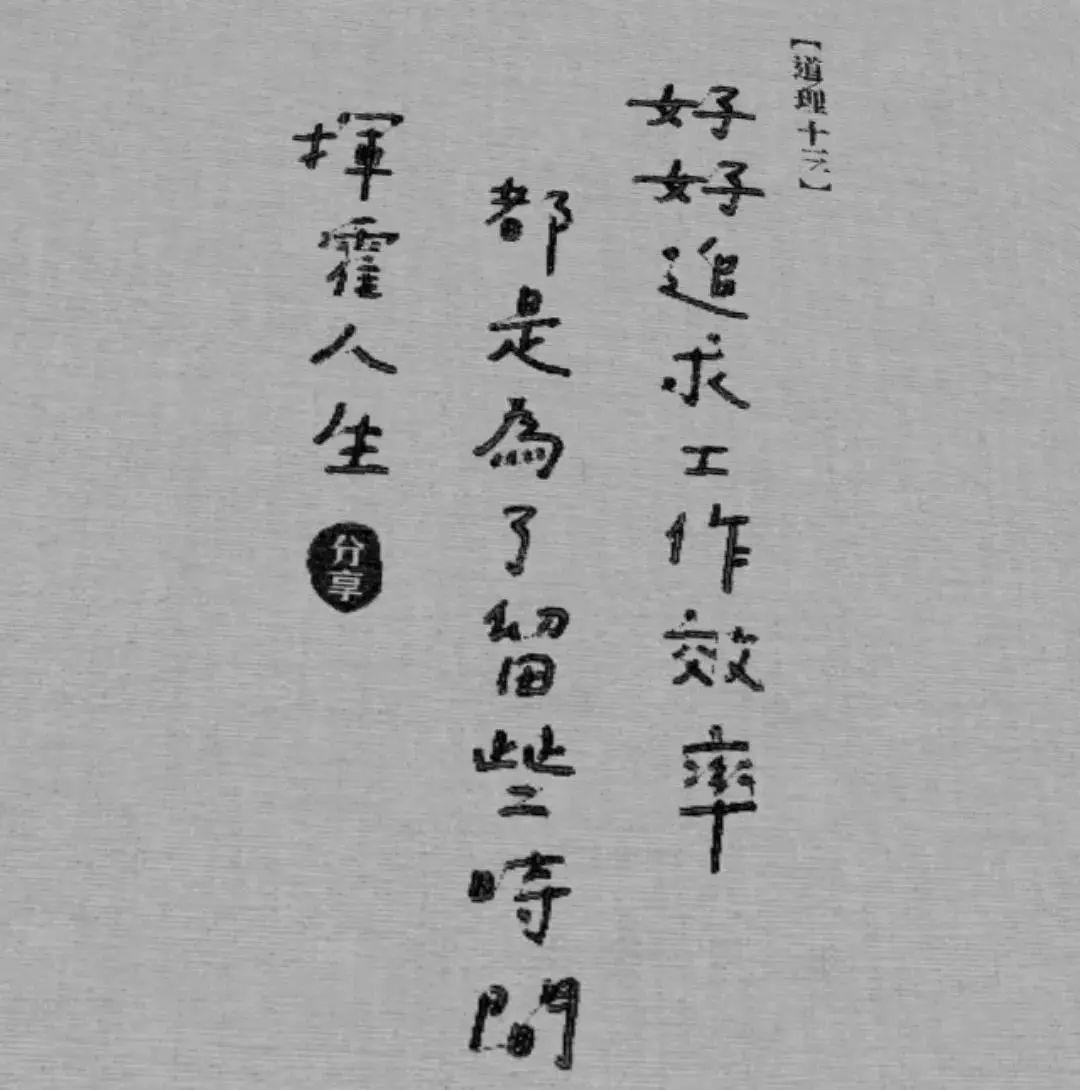 【道理十六】
好好追求工作效率
都是為了留些時間
揮霍人生
分享